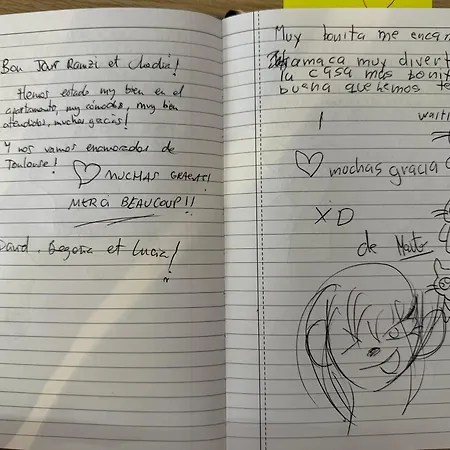 Bon Jour Ramzi et Chadia!
Hemos estado my bien en el
apartamento, my cómodos, muy bien
atendidos, muchas gracias!
Y nos vamos enamorados de
Toulouse!
MUCHAS GRACIAS!
MERCI BEAUCOUP!!
David, Begoña et Lucia!
Muy bonita me encan
amaca muy divert
la casa mas bonit
buena quehemos te
waiti
mochas gracia
XD
de